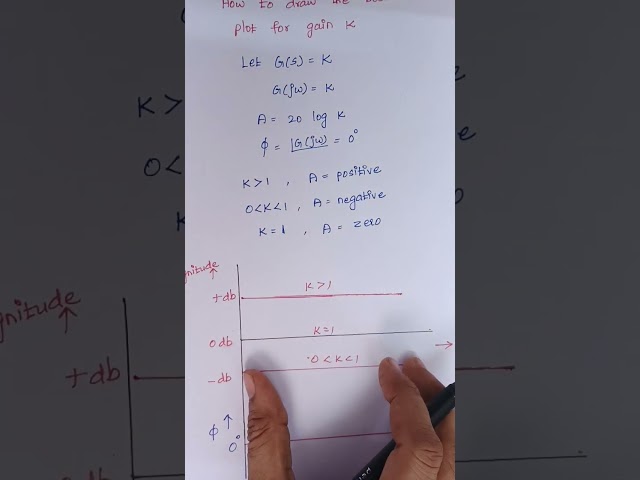 How to draw the
plot for gain K
Let G(s) = K
G(jω) = K
A = 20 log K
ϕ = ∠G(jω) = 0°
K>1 , A = positive
0<K<1 , A = negative
K=1 , A = zero
K>1
+db
K=1
0 db
0<K<1
-db
ϕ ↑
0°